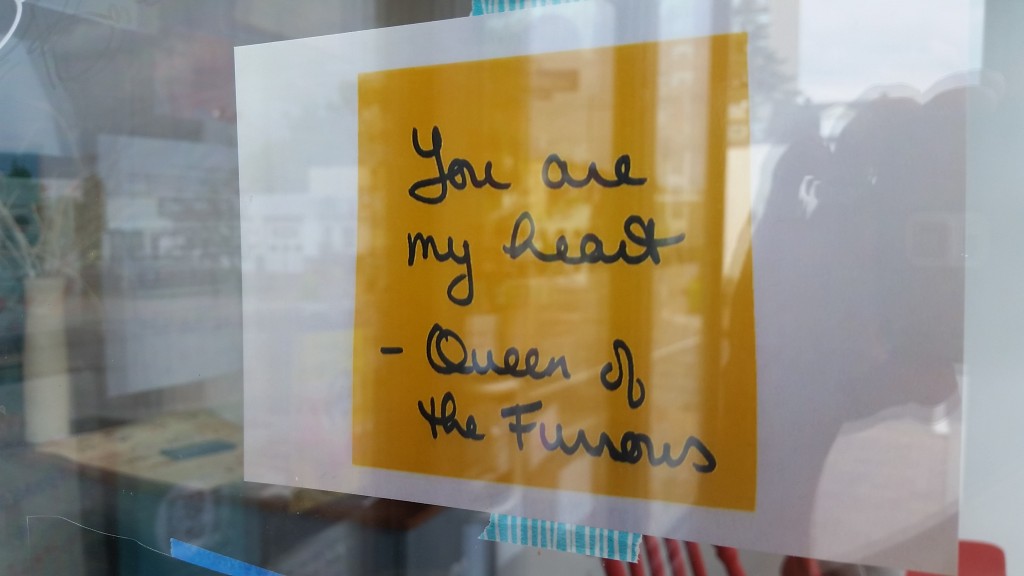 You are
my heart
- Queen of
the Furrows